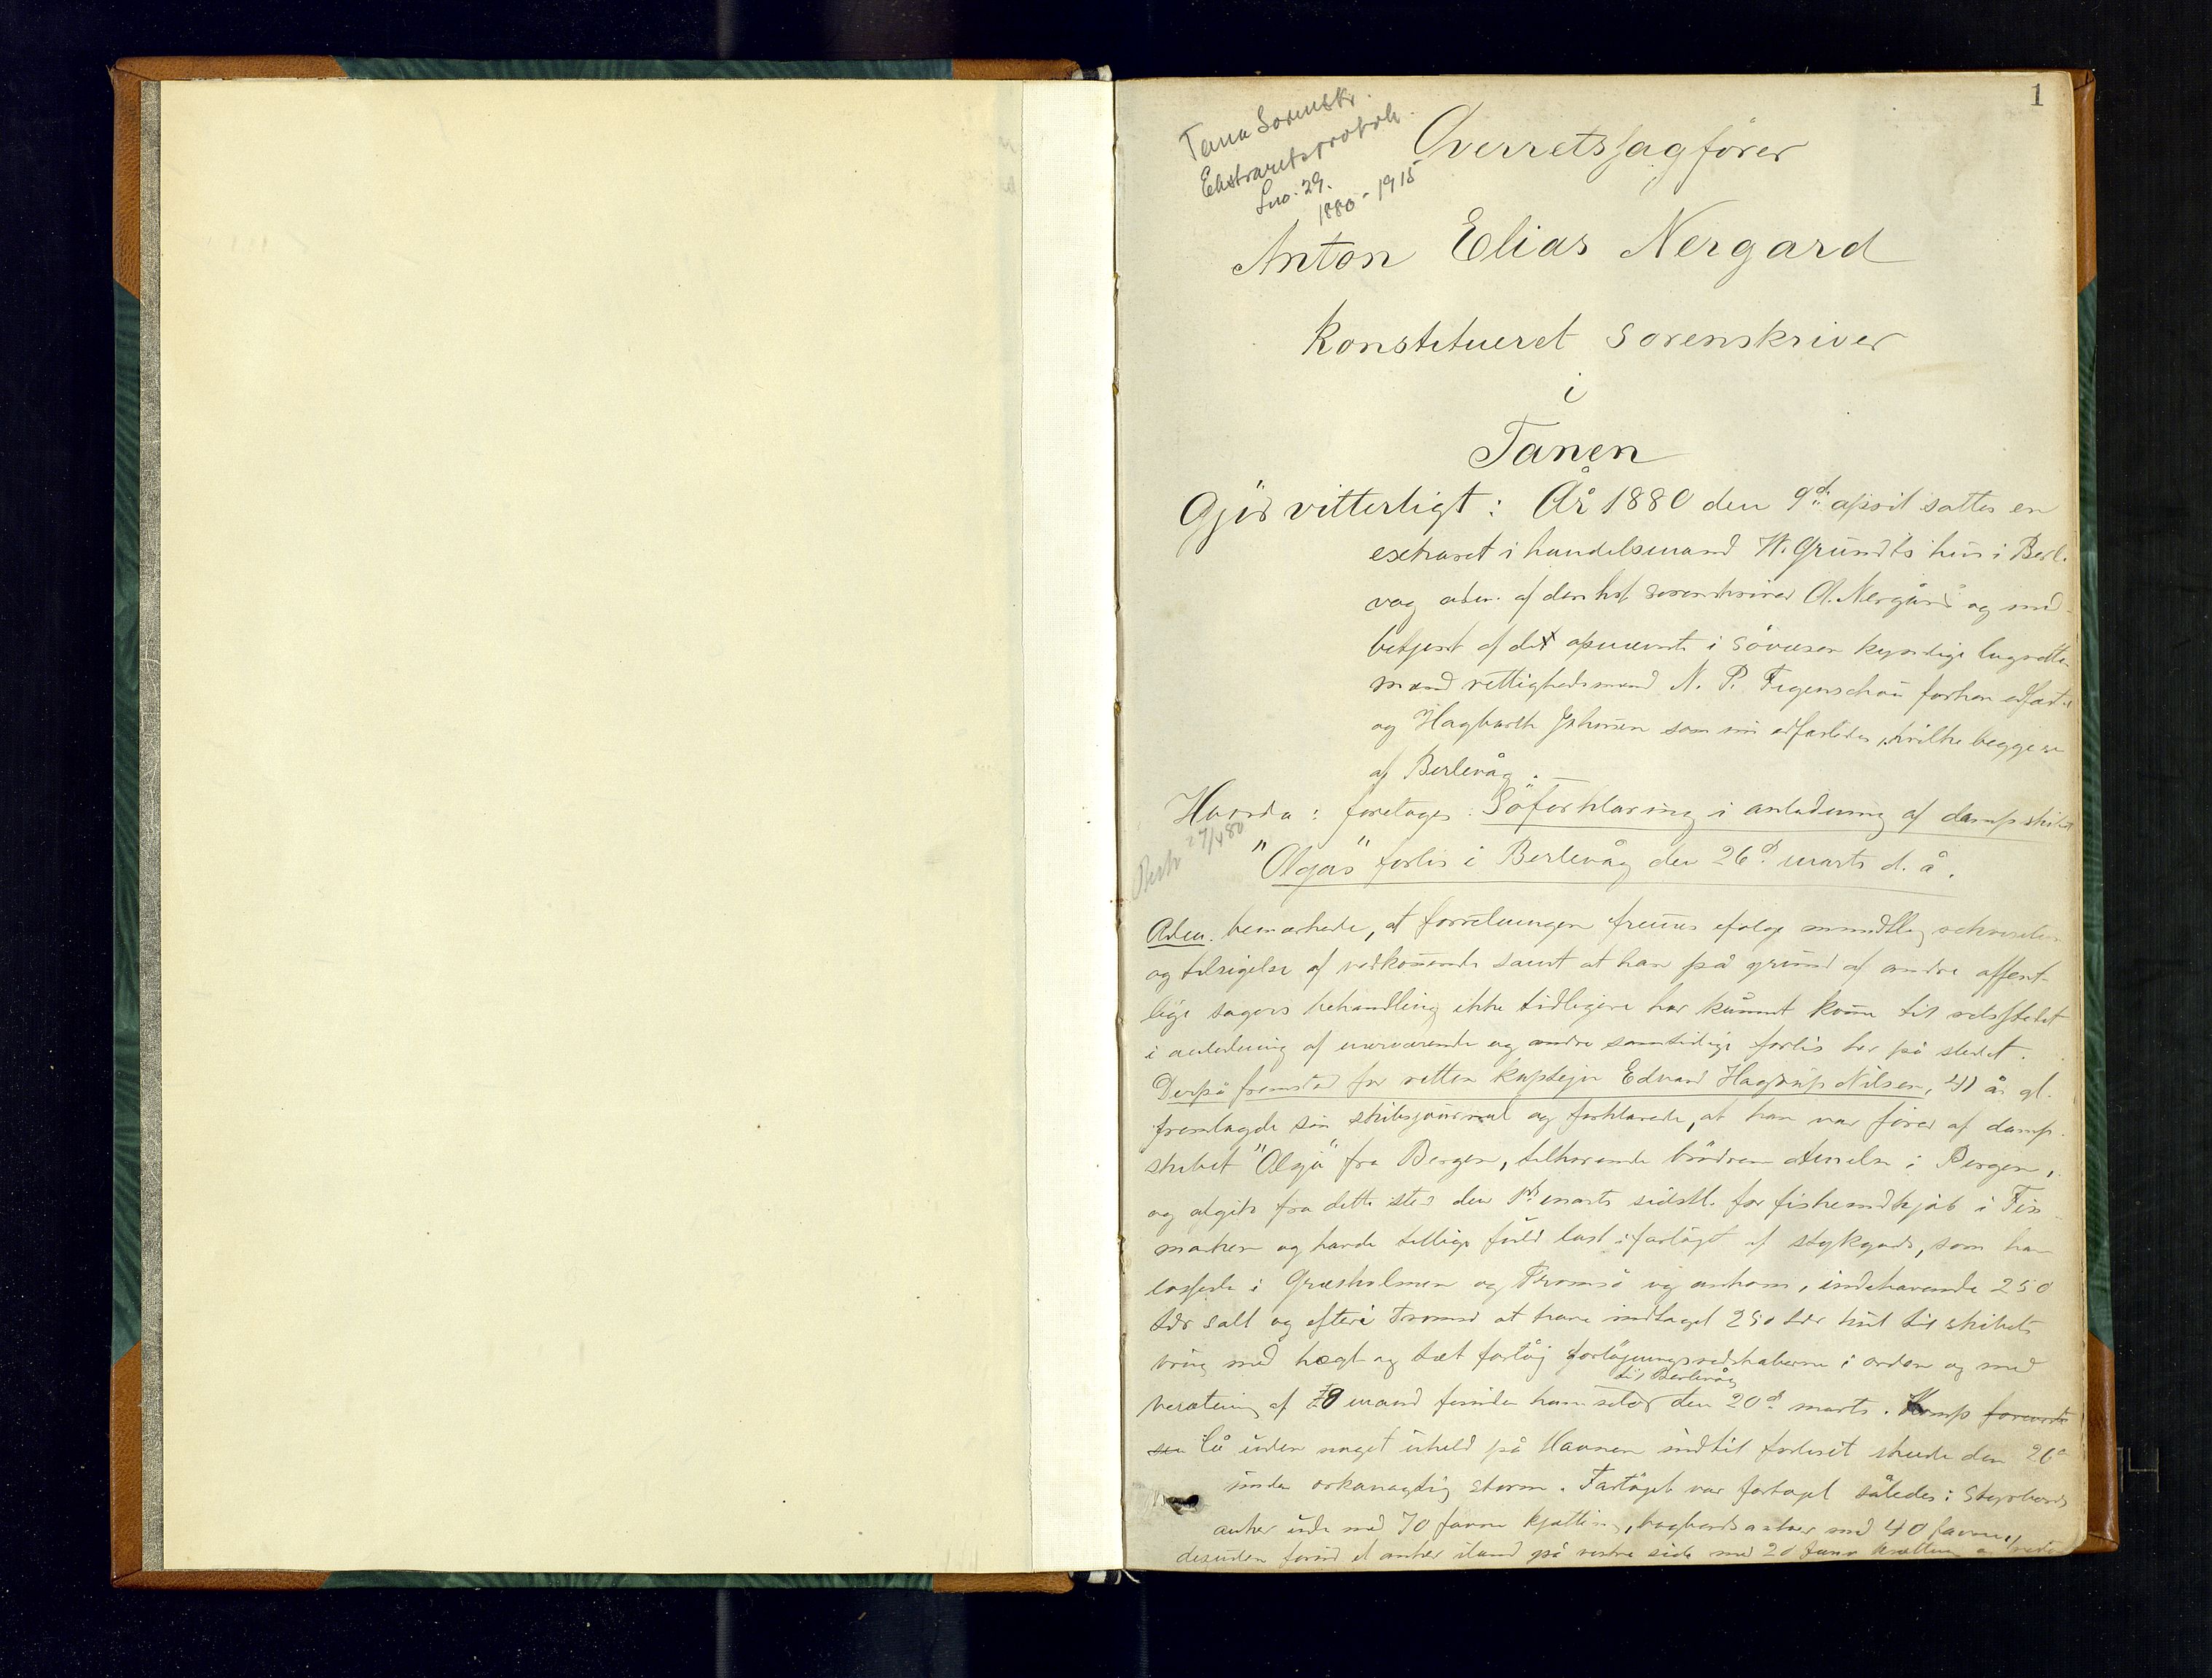 1
Tana Sorenskr.
Ekstraretsprotok.
Lno. 29.
1880-1915
Overretssagfører
Anton Elias Nergård
Konstitueret sorenskriver
i
Tanen
Gjør vitterligt: År 1880 den 9d april sattes en
extraret i handelsmand W. Grundts hus i Berl-
våg adm. af den kst sorenskriver A. Nergård og med-
betjent af de opnævnte i søvæsen kyndige lagrettes-
mænd rettighedsmand N. P. Figenschou forhen edfæstet
og Hagbarth Johnsen som nu edfæstedes, hvilke begge er
af Berlevåg.
Hvorda: foretoges: Søforklaring i anledning af dampskibet
"Olgas" forlis i Berlevåg den 26d marts d. å.
27/4 80
Adm. bemærkede, at forretningen fremes ifølge mundtlig rekvisition
og tilsigelse af vedkommende samt at han på grund af andre offent-
lige sagers behandling ikke tidligere har kunnet komme til retsstedet
i anledning af nærværende og andre samtidige forlis her på stedet.
Derpå fremstod for retten kaptejn Edvard Hagerup Nilsen, 41 år gl.
fremlagde sin skibsjournal og forklarede, at han var fører af damp-
skibet "Olga" fra Bergen, tilhørende brødrene i Bergen,
og afgik fra dette sted den 1st marts sidstl. for fiskeindkjøb i Fin-
marken og havde tillige fuld last i fartøjet af stykgods, som han
lossede i Græsholmen og Tromsø og ankom, indehavende 250
tdr salt og efter i Tromsø at have indtaget 250 tdr kul til skibets
brug med hægt og tæt fartøj fortøjningsredskaberne i orden og med
til Berlevåg
besætning af 8 mand foruden ham selv den 20d marts. Komp forværts
sen lå uden noget uheld på Havnen indtil forliset skede den 26d
under orkanagtig storm. Fartøjet var fortøjet således: Styrbords
anker ude med 70 favne kjætting, bagbords anker med 40 favne,
desuden forud et anker iland på vestre side med 20 favne kjætting